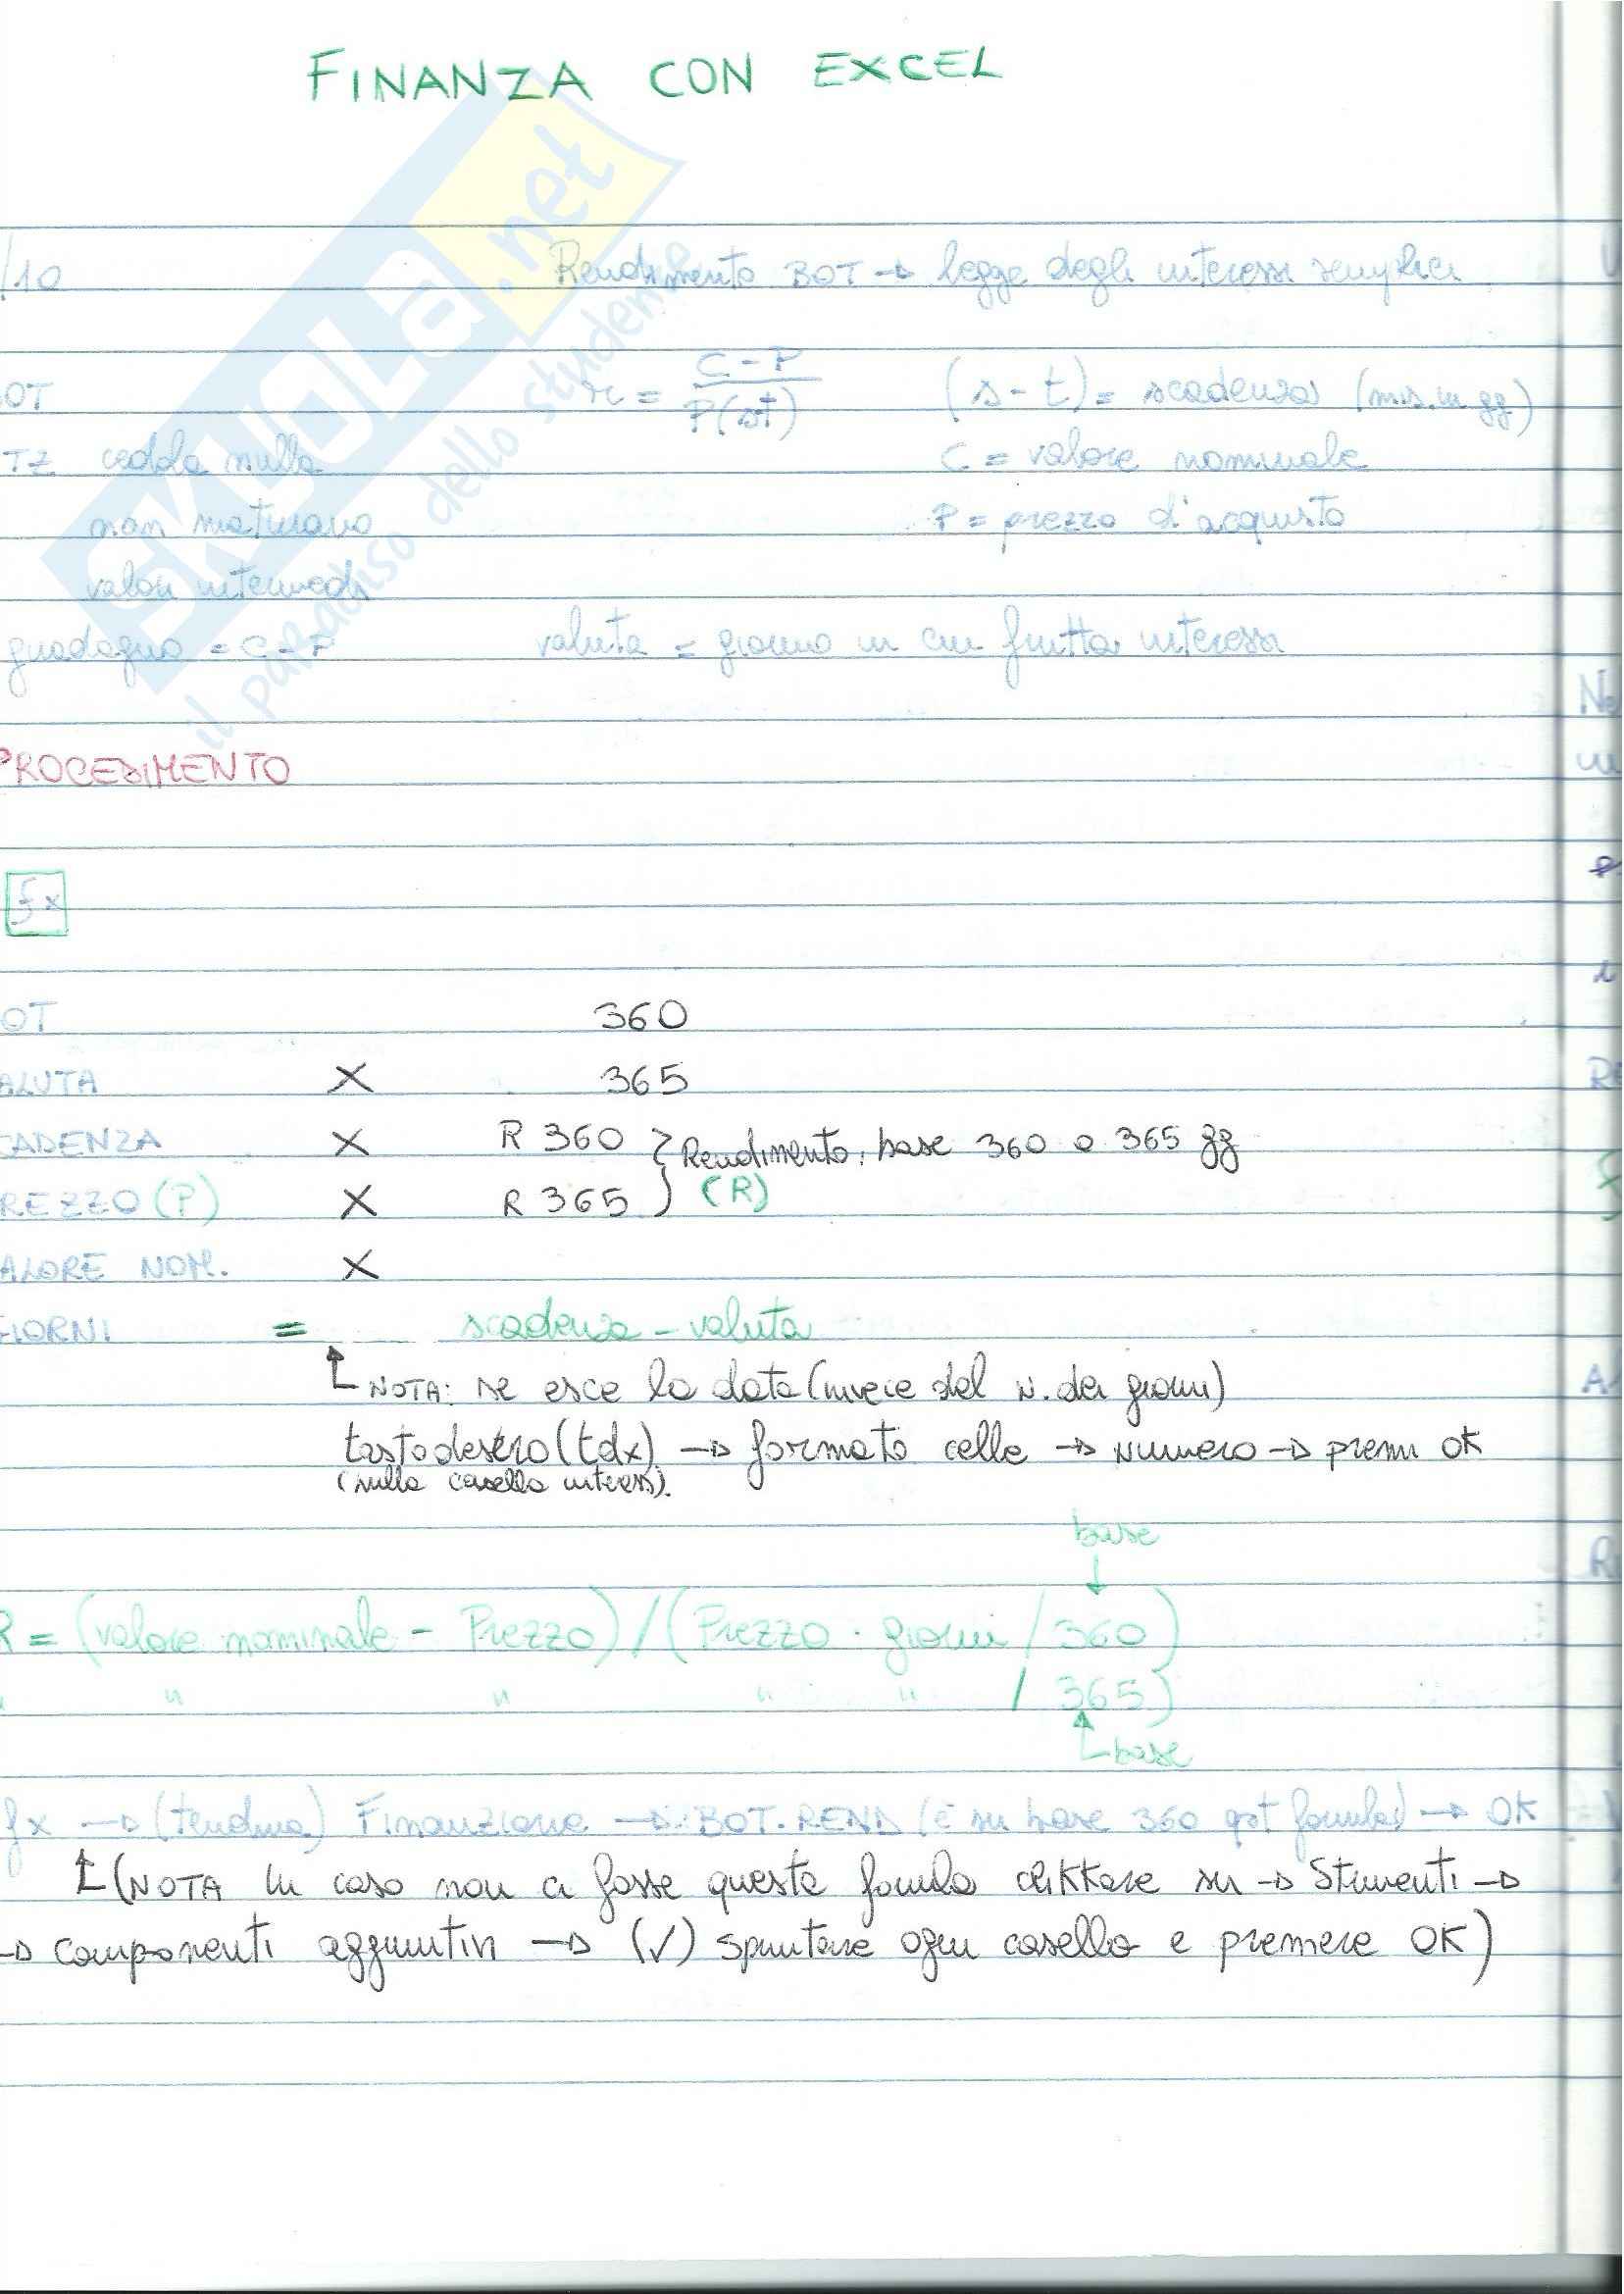 FINANZA CON EXCEL
/10 Rendimento BOT → legge degli interessi semplici
OT r = C-P / P(s-t) (s-t) = scadenza (mis. in gg)
TZ cedola nulla C = valore nominale
non maturano P = prezzo d'acquisto
valori intermedi
guadagno = C-P valuta = giorno in cui frutta interessi
PROCEDIMENTO
fx
OT 360
ALUTA X 365
CADENZA X R 360 } Rendimento, base 360 o 365 gg
REZZO (P) X R 365 } (R)
ALORE NOM. X
GIORNI = scadenza - valuta
NOTA: se esce la data (invece del N. dei giorni)
tasto destro (tdx) → formato celle → numero → premi OK
(sulla casella interess).
base
↓
R = (valore nominale - Prezzo) / (Prezzo · giorni / 360)
" " " " " / 365)
base
fx → (tendina) Finanziarie → BOT.REND (è su base 360 qst formula) → OK
(NOTA in caso non ci fosse questa formula clikkare su → Strumenti →
→ componenti aggiuntivi → (✓) spuntare ogni casella e premere OK)
SKUOLA.net
il paradiso dello studente